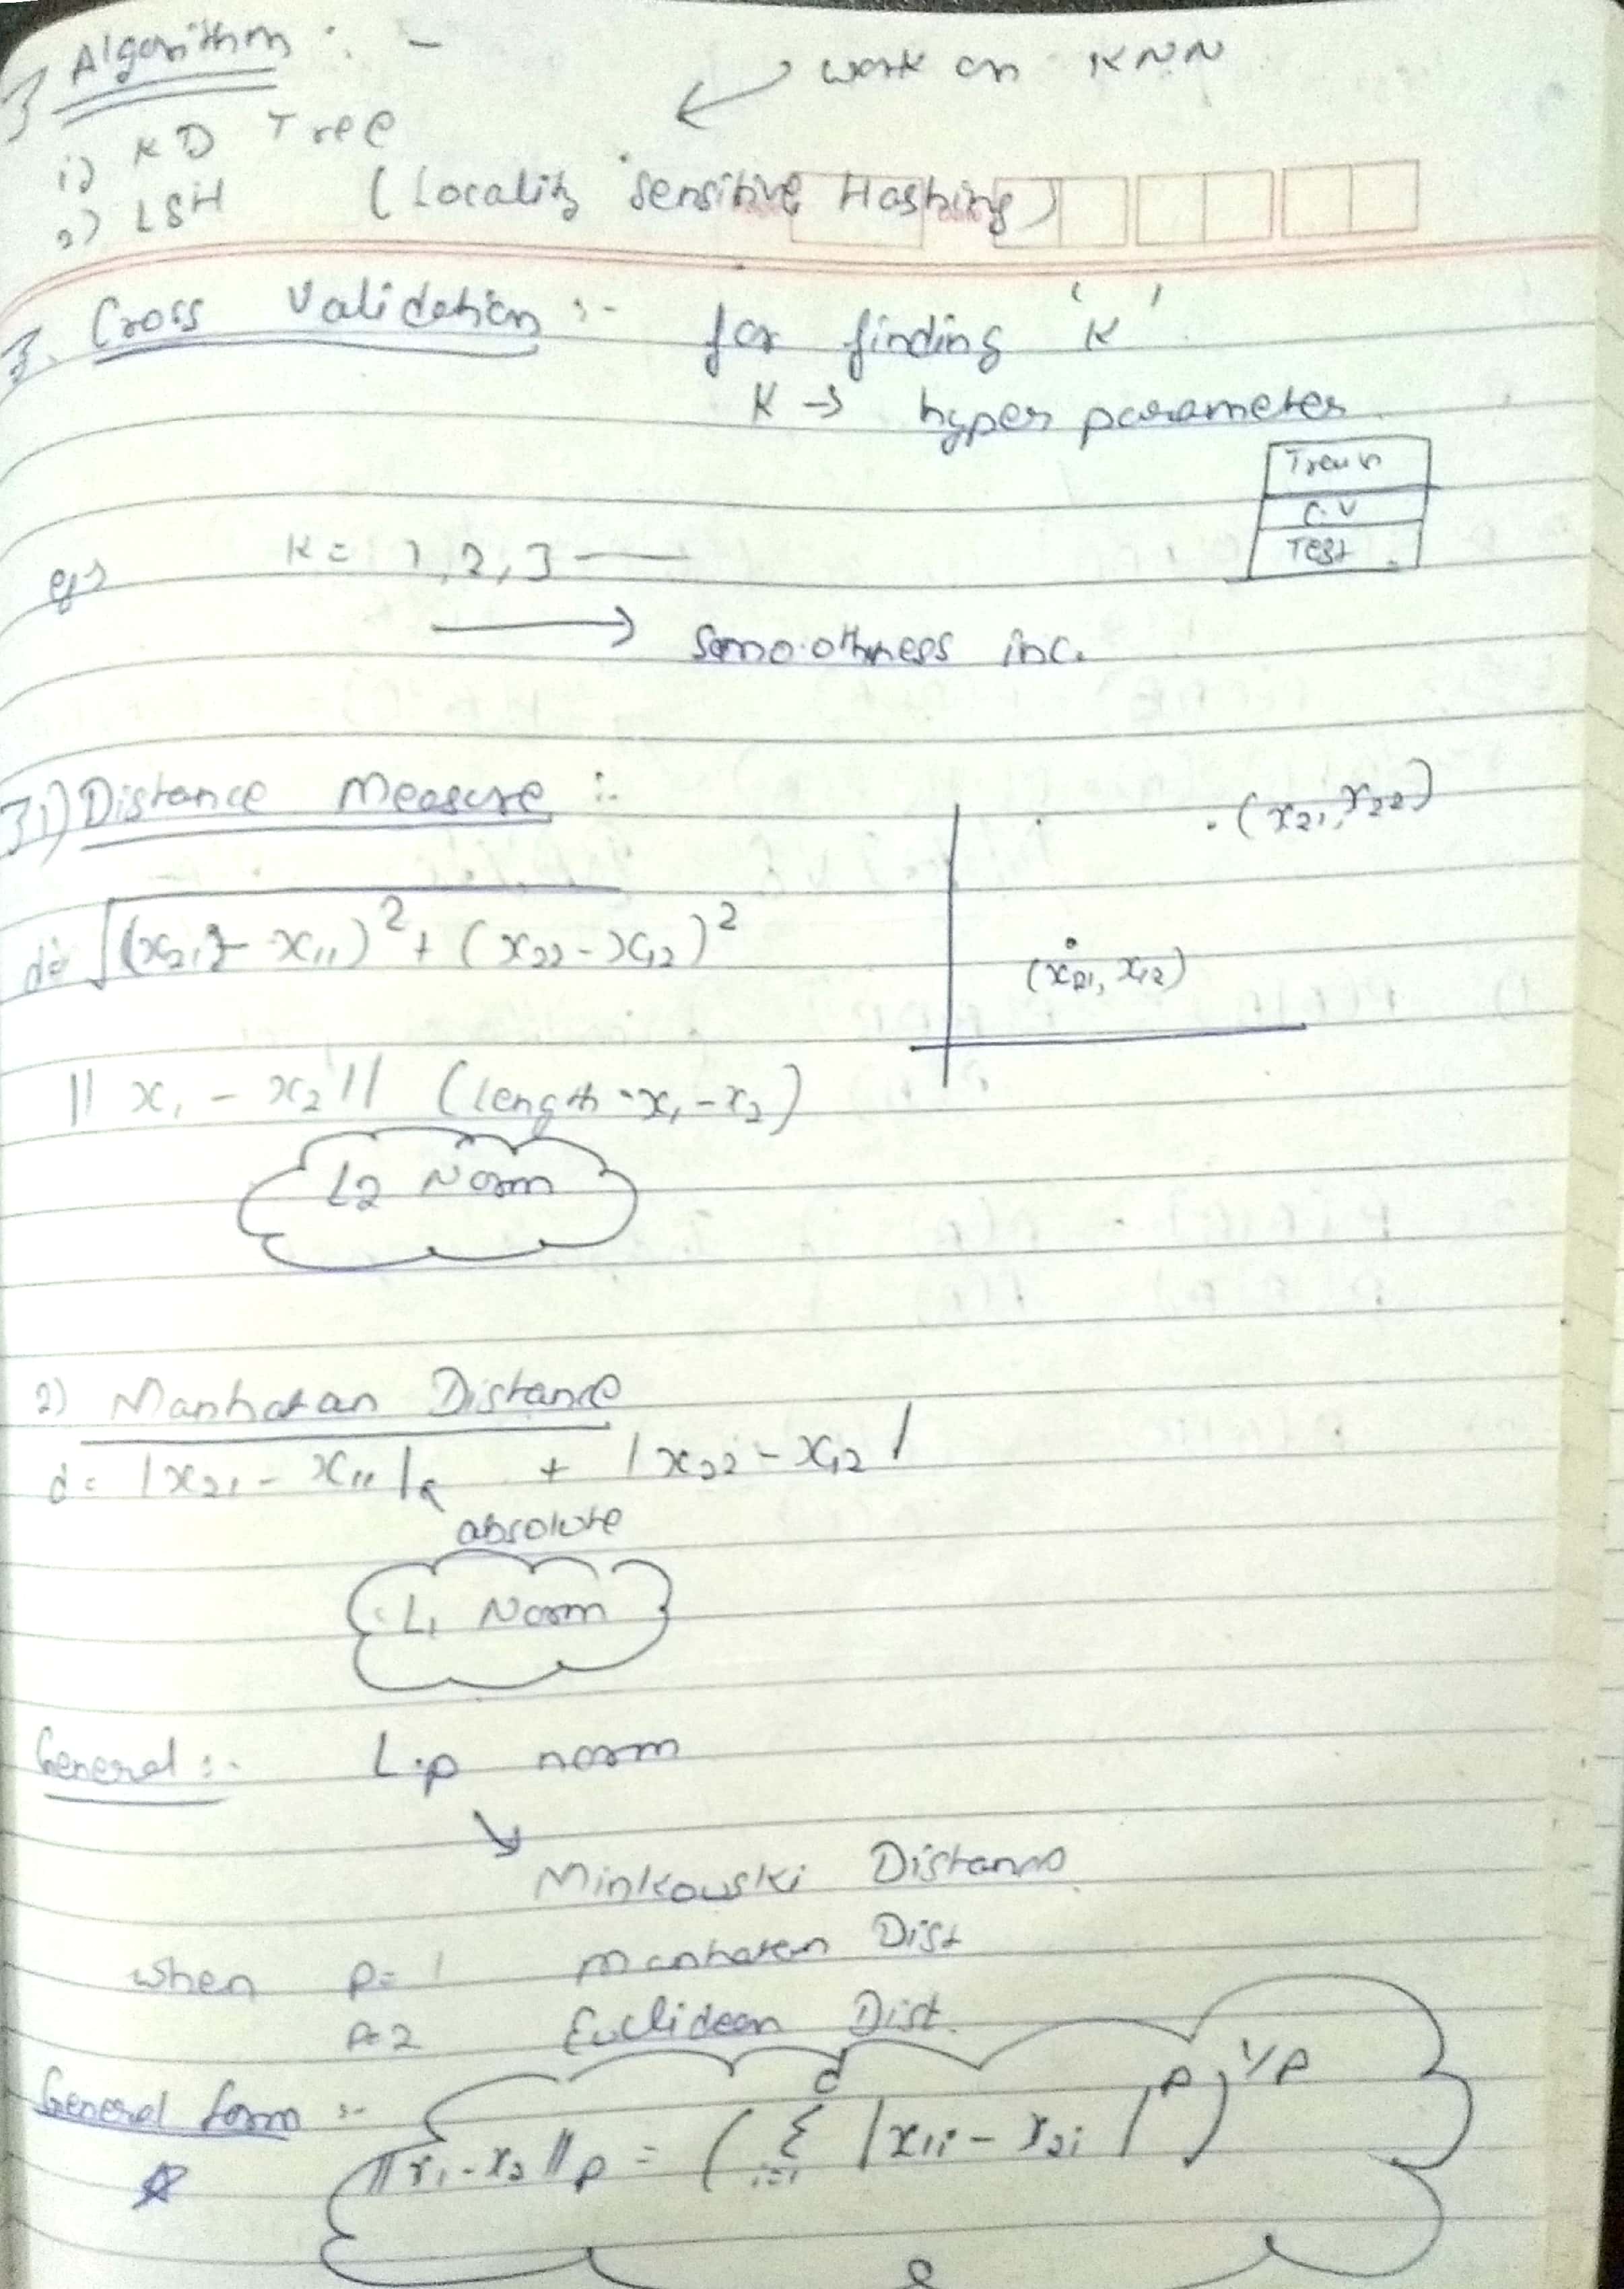 Algorithm :-
work on KNN
1) KD Tree
2) LSH (Locality sensitive Hashing)
3. Cross Validation :- for finding 'K'
K → hyper parameter
Train
C.V
Test
eg> K = 1, 2, 3 —
→ Smoothness inc.
1) Distance Measure :-
.(x₂₁, x₂₂)
d = √(x₂₁ - x₁₁)² + (x₂₂ - x₁₂)²
(x₂₁, x₁₂)
|| x₁ - x₂ || (length - x₁ - x₂)
L2 Norm
2) Manhatan Distance
d = |x₂₁ - x₁₁| + |x₂₂ - x₁₂|
absolute
L₁ Norm
General :- L.p norm
↘
Minkowski Distance
when p=1 Manhatan Dist
p=2 Euclidean Dist.
General form :-
☆ ||x₁ - x₂||p = ( d Σ i=1 |x₁ᵢ - x₂ᵢ|ᵖ )^1/P